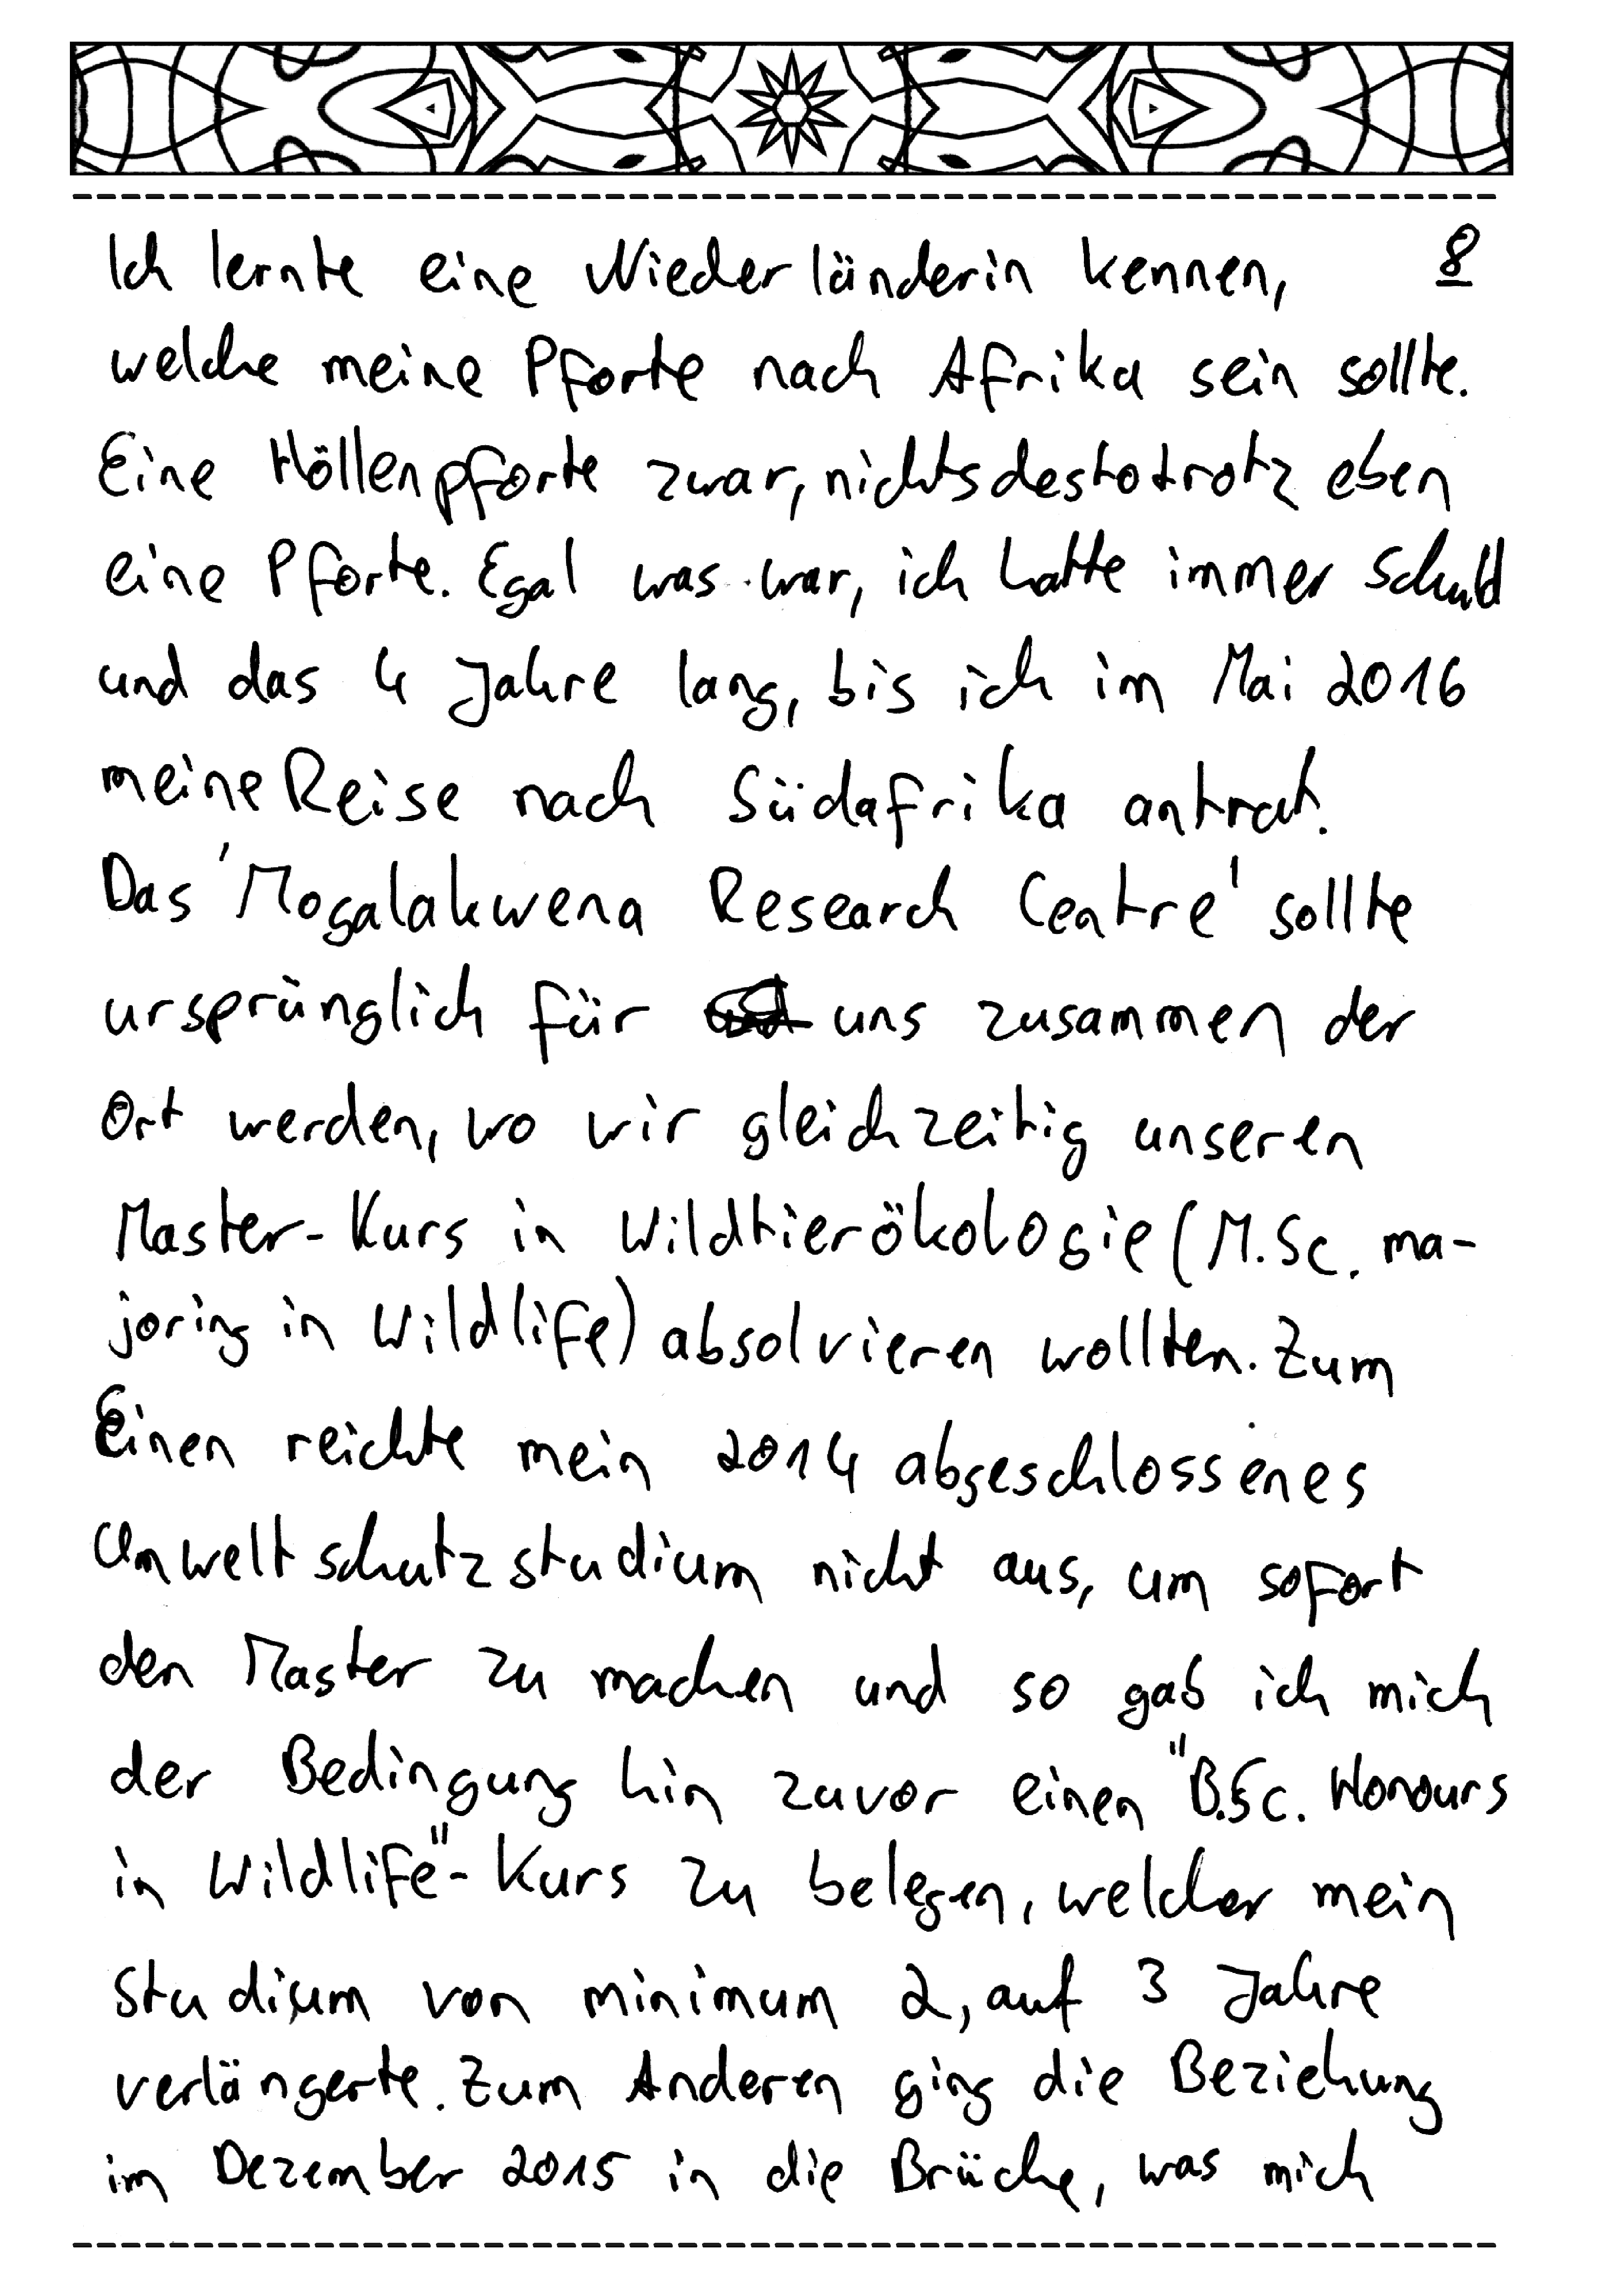 Ich lernte eine Niederländerin kennen, 8
welche meine Pforte nach Afrika sein sollte.
Eine Höllenpforte zwar, nichtsdestotrotz eben
eine Pforte. Egal was war, ich hatte immer Schuld
und das 4 Jahre lang, bis ich im Mai 2016
meine Reise nach Südafrika antrat.
Das 'Mogalakwena Research Centre' sollte
ursprünglich für uns zusammen der
Ort werden, wo wir gleichzeitig unseren
Master-Kurs in Wildtierökologie (M.Sc. ma-
joring in Wildlife) absolvieren wollten. Zum
Einen reichte mein 2014 abgeschlossenes
Umweltschutzstudium nicht aus, um sofort
den Master zu machen und so gab ich mich
der Bedingung hin zuvor einen "B.Sc. Honours
in Wildlife"-Kurs zu belegen, welcher mein
Studium von minimum 2, auf 3 Jahre
verlängerte. Zum Anderen ging die Beziehung
im Dezember 2015 in die Brüche, was mich